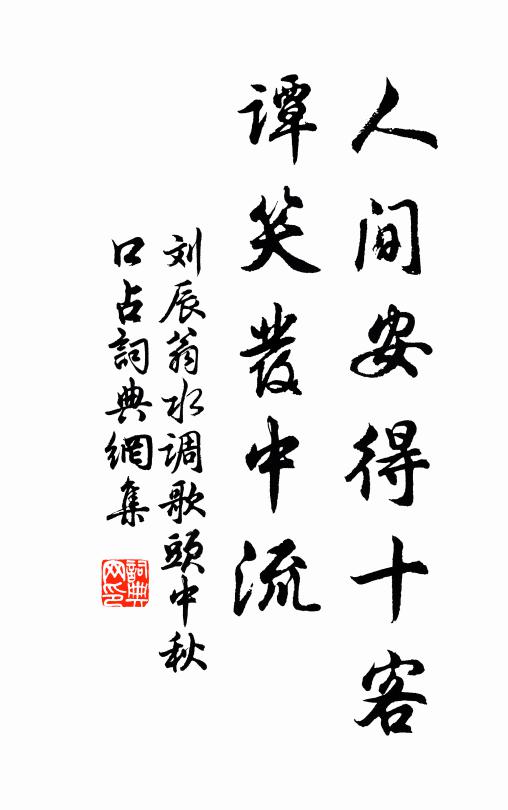 人间安得十客
谭笑發中流
刘辰翁水调歌頭中秋
口占詞典網集
詞典网印